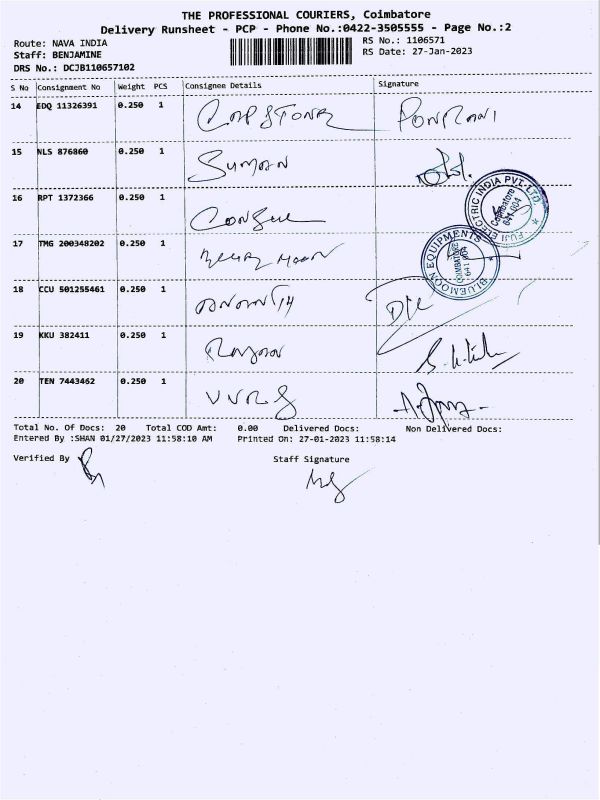 THE PROFESSIONAL COURIERS, Coimbatore
Delivery Runsheet - PCP - Phone No.:0422-3505555 - Page No.:2
Route: NAVA INDIA
RS No.: 1106571
Staff: BENJAMINE
RS Date: 27-Jan-2023
DRS No.: DCJB110657102
S No Consignment No Weight PCS Consignee Details Signature
14 EDQ 11326391 0.250 1 CAPSTONE PONRANI
15 NLS 876860 0.250 1 SUMAN
16 RPT 1372366 0.250 1
FUJI ELECTRIC INDIA PVT. LTD.
Coimbatore
641 004
17 TMG 200348202 0.250 1 BLUE MOON
BLUEMOON EQUIPMENTS
COIMBATORE
18 CCU 501255461 0.250 1 ANANTH
19 KKU 382411 0.250 1
20 TEN 7443462 0.250 1
Total No. Of Docs: 20 Total COD Amt: 0.00 Delivered Docs: Non Delivered Docs:
Entered By :SHAN 01/27/2023 11:58:10 AM Printed On: 27-01-2023 11:58:14
Verified By
Staff Signature